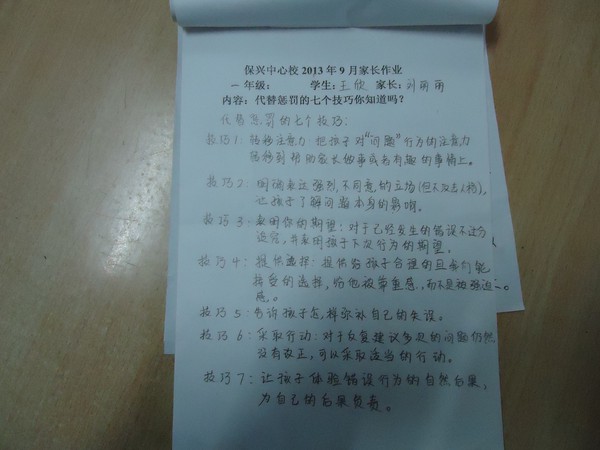 保兴中心校 2013 年 9 月家长作业
一 年级： 学生：王欣 家长：刘丽丽
内容：代替惩罚的七个技巧你知道吗？
代替惩罚的七个技巧：
技巧1：转移注意力：把孩子对“问题”行为的注意力
转移到帮助家长做事或者有趣的事情上。
技巧2：明确表达强烈，不同意的立场（但不攻击人格），
让孩子了解问题本身的影响。
技巧3：表明你的期望：对于已经发生的错误不过分
追究，并表明孩子下次行为的期望。
技巧4：提供选择：提供给孩子合理的且我们能
接受的选择，给他被尊重感，而不是被强迫
感。
技巧5：告诉孩子怎样弥补自己的失误。
技巧6：采取行动：对于反复建议多是的问题仍然
没有改正，可以采取适当的行动。
技巧7：让孩子体验错误行为的自然后果，
为自己的后果负责。